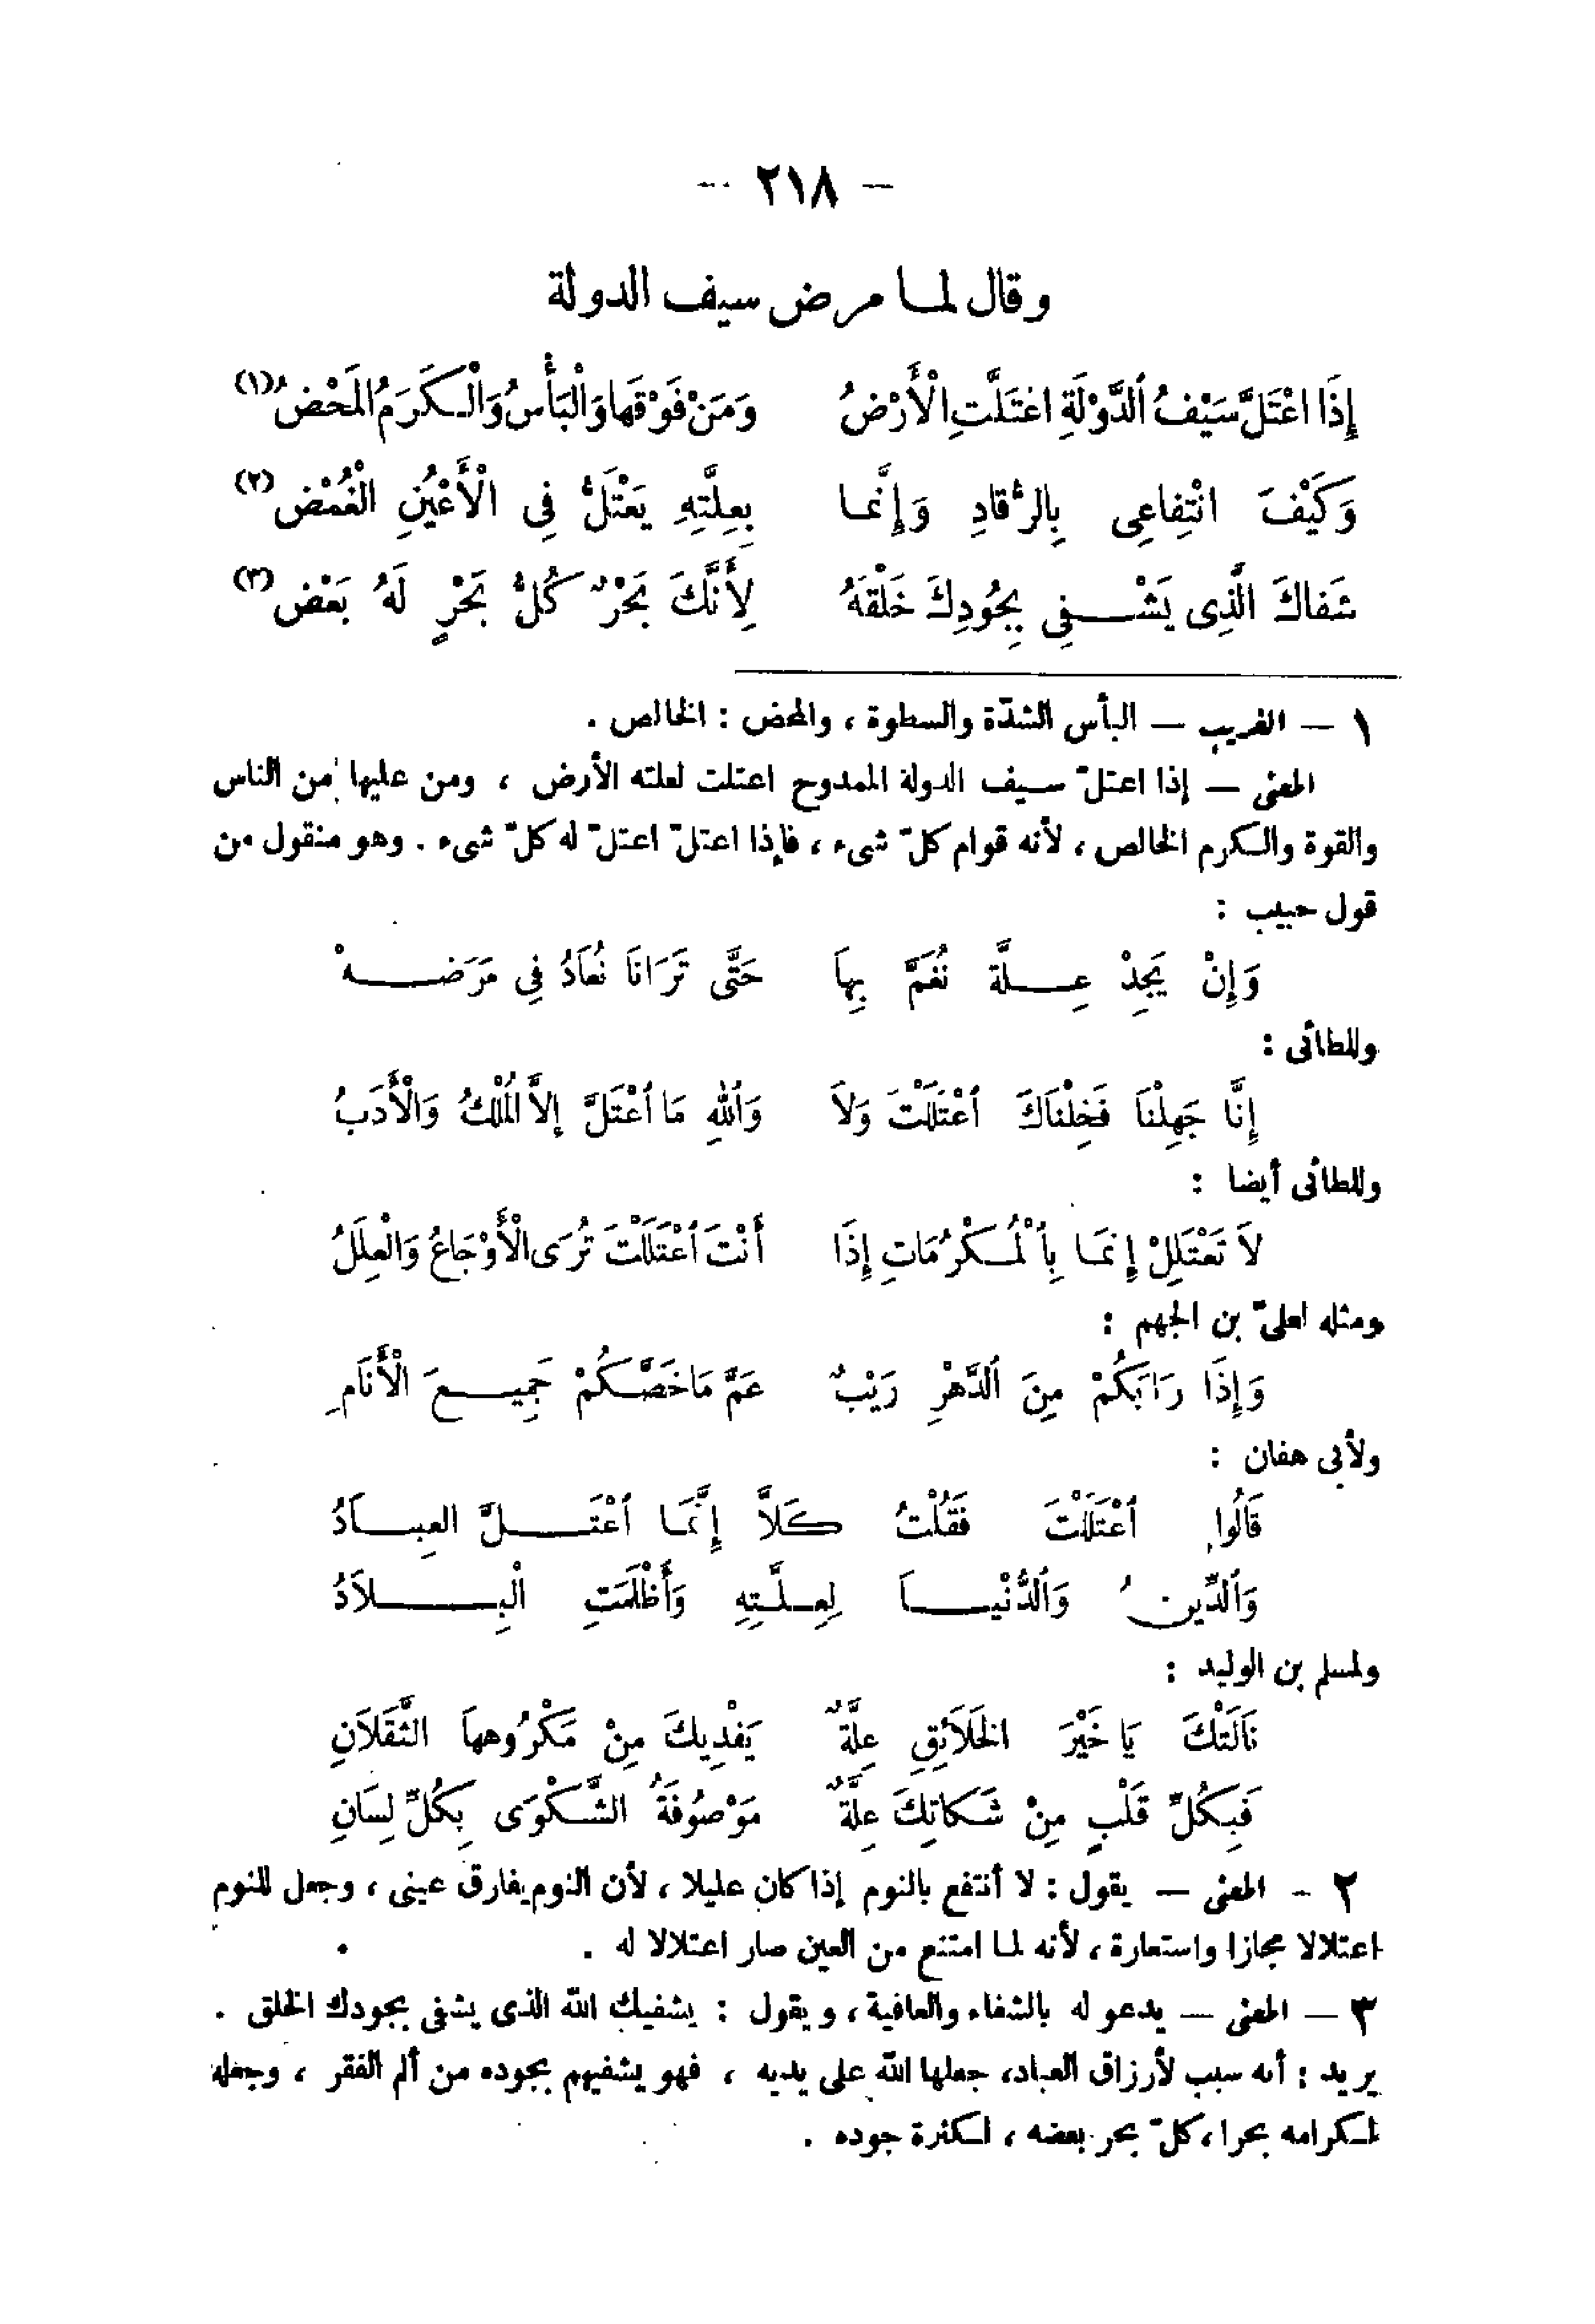 - ٢١٨ -
وقال لما مرض سيف الدولة
إِذَا اعْتَلَّ سَيْفُ ٱلدَّوْلَةِ اعْتَلَّتِ الْأَرْضُ وَمَنْ فَوْقَها وَالْبَأْسُ وَالْكَرَمُ الْمَحْضُ (١)
وَكَيْفَ انْتِفاعِى بِالرُّقادِ وَإِنَّما بِعِلَّتِهِ يَعْتَلُّ فِى الْأَعْيُنِ الْغُمْضُ (٢)
شَفاكَ الَّذِى يَشْفِى بِجُودِكَ خَلْقَهُ لِأَنَّكَ بَحْرٌ كُلُّ بَحْرٍ لَهُ بَعْضُ (٣)
١ — الغريب — البأس الشدّة والسطوة ، والمحض : الخالص .
المعنى — إذا اعتلّ سيف الدولة الممدوح اعتلت لعلته الأرض ، ومن عليها من الناس
والقوة والكرم الخالص ، لأنه قوام كلّ شىء ، فإذا اعتلّ اعتلّ له كلّ شىء . وهو منقول من
قول حبيب :
وَإِنْ يَجِدْ عِلَّة نُغَمَّ بِهاَ حَتَّى تَرَاناَ نُعاَدُ فِى مَرَضِهْ
وللطائى :
إِنَّا جَهِلْناَ فَخِلْناَكَ ٱعْتَلَلْتَ وَلاَ وَٱللهِ مَا ٱعْتَلَّ إِلاَّ الْمُلْكُ وَالْأَدَبُ
وللطائى أيضا :
لاَ تَعْتَلِلْ إِنَّمَا بِٱلْمَكْرُمَاتِ إِذَا أَنْتَ ٱعْتَلَلْتَ تُرَى الْأَوْجَاعُ وَالْعِلَلُ
ومثله لعلىّ بن الجهم :
وَإِذَا رَابَكُمْ مِنَ ٱلدَّهْرِ رَيْبٌ عَمَّ مَا خَصَّكُمْ جَمِيعَ الْأَنَامِ
ولأبى هفان :
قَالُوا ٱعْتَلَلْتَ فَقُلْتُ كَلاَّ إِنَّمَا ٱعْتَلَّ العِباَدُ
وَٱلدِّينُ وَٱلدُّنْياَ لِعِلَّتِهِ وَأَظْلَمَتِ الْبِلاَدُ
ولمسلم بن الوليد :
نَالَتْكَ يَا خَيْرَ الخَلاَئِقِ عِلَّةٌ يَفْدِيكَ مِنْ مَكْرُوهِهاَ الثَّقَلاَنِ
فَبِكُلِّ قَلْبٍ مِنْ شَكَاتِكَ عِلَّةٌ مَوْصُوفَةُ الشَّكْوَى بِكُلِّ لِسَانِ
٢ - المعنى — يقول : لا أنتفع بالنوم إذا كان عليلا ، لأن النوم يفارق عينى ، وجعل للنوم
اعتلالا مجازا واستعارة ، لأنه لما امتنع من العين صار اعتلالا له .
٣ — المعنى — يدعو له بالشفاء والعافية ، ويقول : يشفيك الله الذى يشفى بجودك الخلق .
يريد : أنه سبب لأرزاق العباد، جعلها الله على يديه ، فهو يشفيهم بجوده من ألم الفقر ، وجعله
لكرامه بحرا ، كلّ بحر بعضه ، لكثرة جوده .